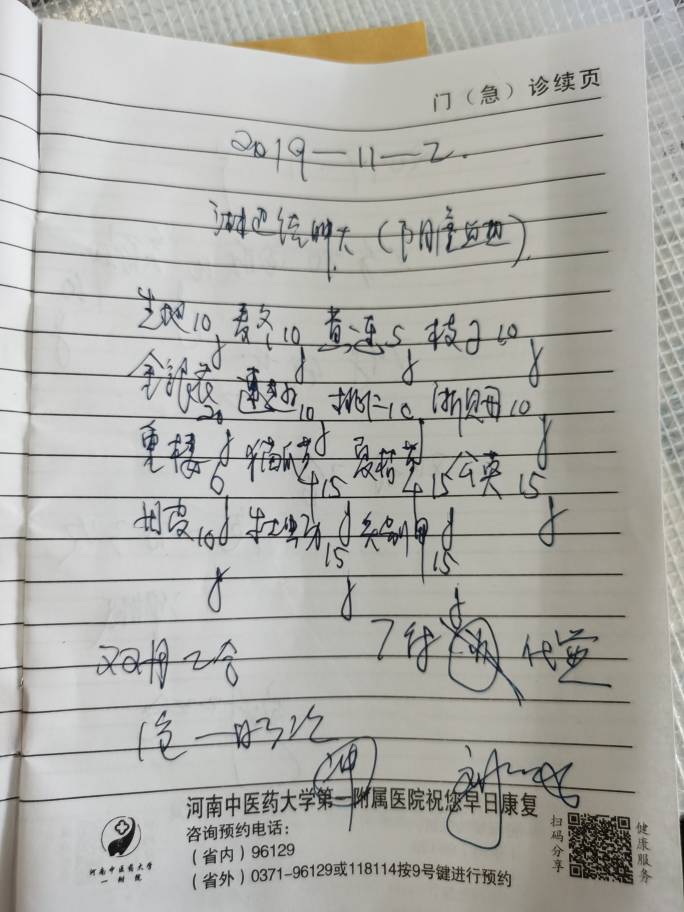 门（急）诊续页
2019-11-2.
淋巴结肿大（
生地10g 麦冬10g 黄连5g 枝子10g
金银花20g 连翘10g 桃仁10g 浙贝母10g
重楼6g 猫爪草15g 夏枯草15g 公英15g
丹皮10g 牡蛎15g 炙别甲15g
7付 代煎
一日3次
河南中医药大学第一附属医院祝您早日康复
咨询预约电话：
（省内）96129
（省外）0371-96129或118114按9号键进行预约
河南中医药大学
一附院
扫码分享
健康服务